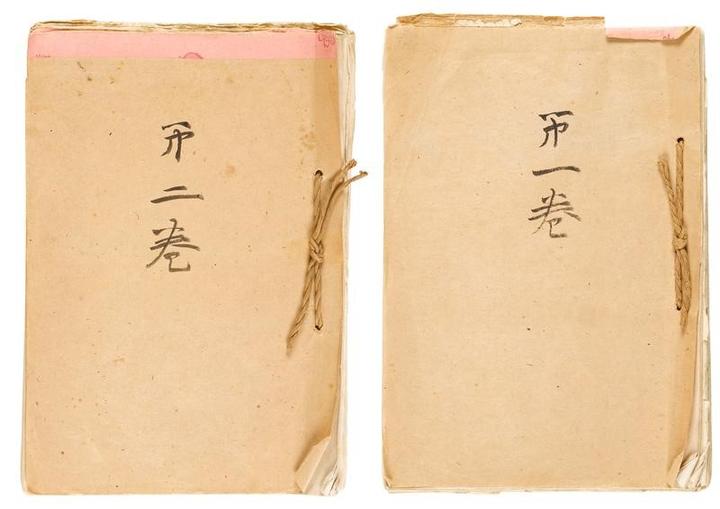 第二巻
第一巻